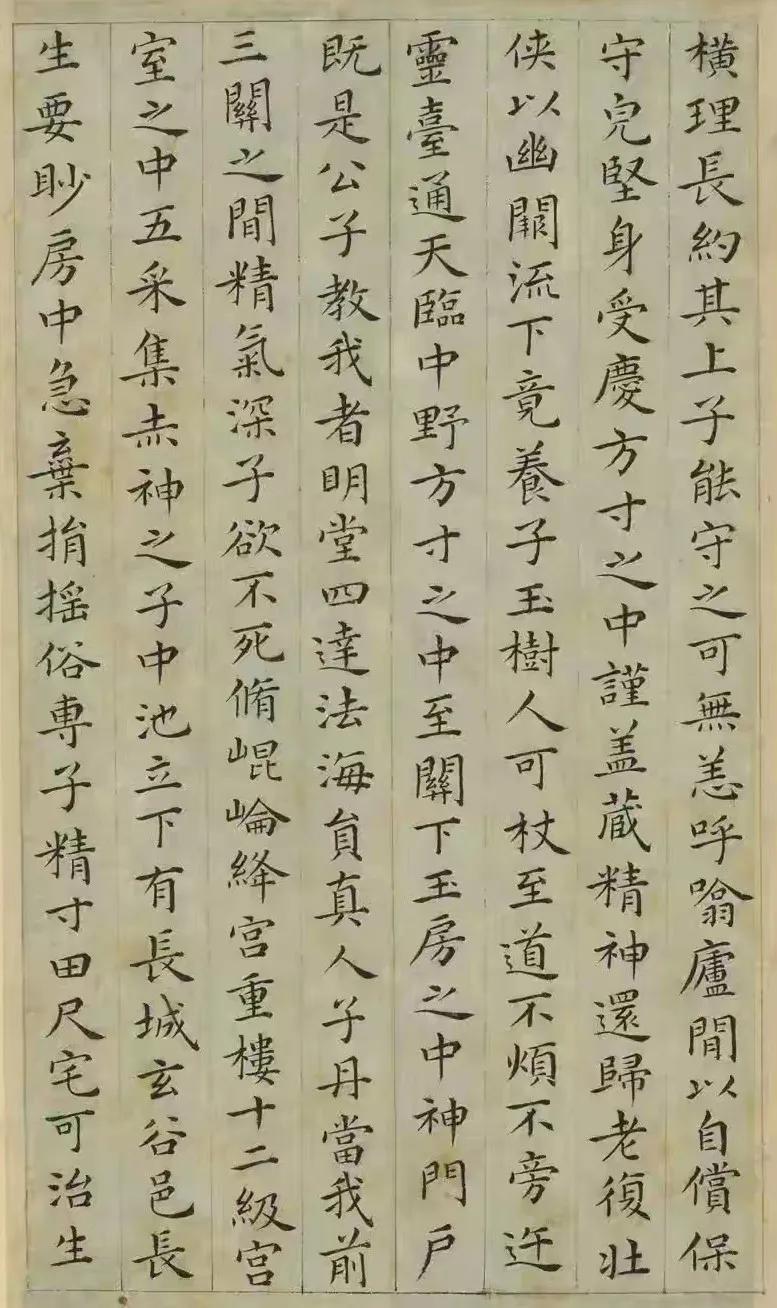 橫理長約其上子能守之可無恙呼噏廬間以自償保
守皃堅身受慶方寸之中謹盖藏精神還歸老復壯
俠以幽闕流下竟養子玉樹人可杖至道不煩不旁迕
靈臺通天臨中野方寸之中至關下玉房之中神門戶
既是公子教我者明堂四達法海員真人子丹當我前
三關之間精氣深子欲不死脩崐崘絳宮重樓十二級宮
室之中五采集赤神之子中池立下有長城玄谷邑長
生要眇房中急棄捐摇俗專子精寸田尺宅可治生